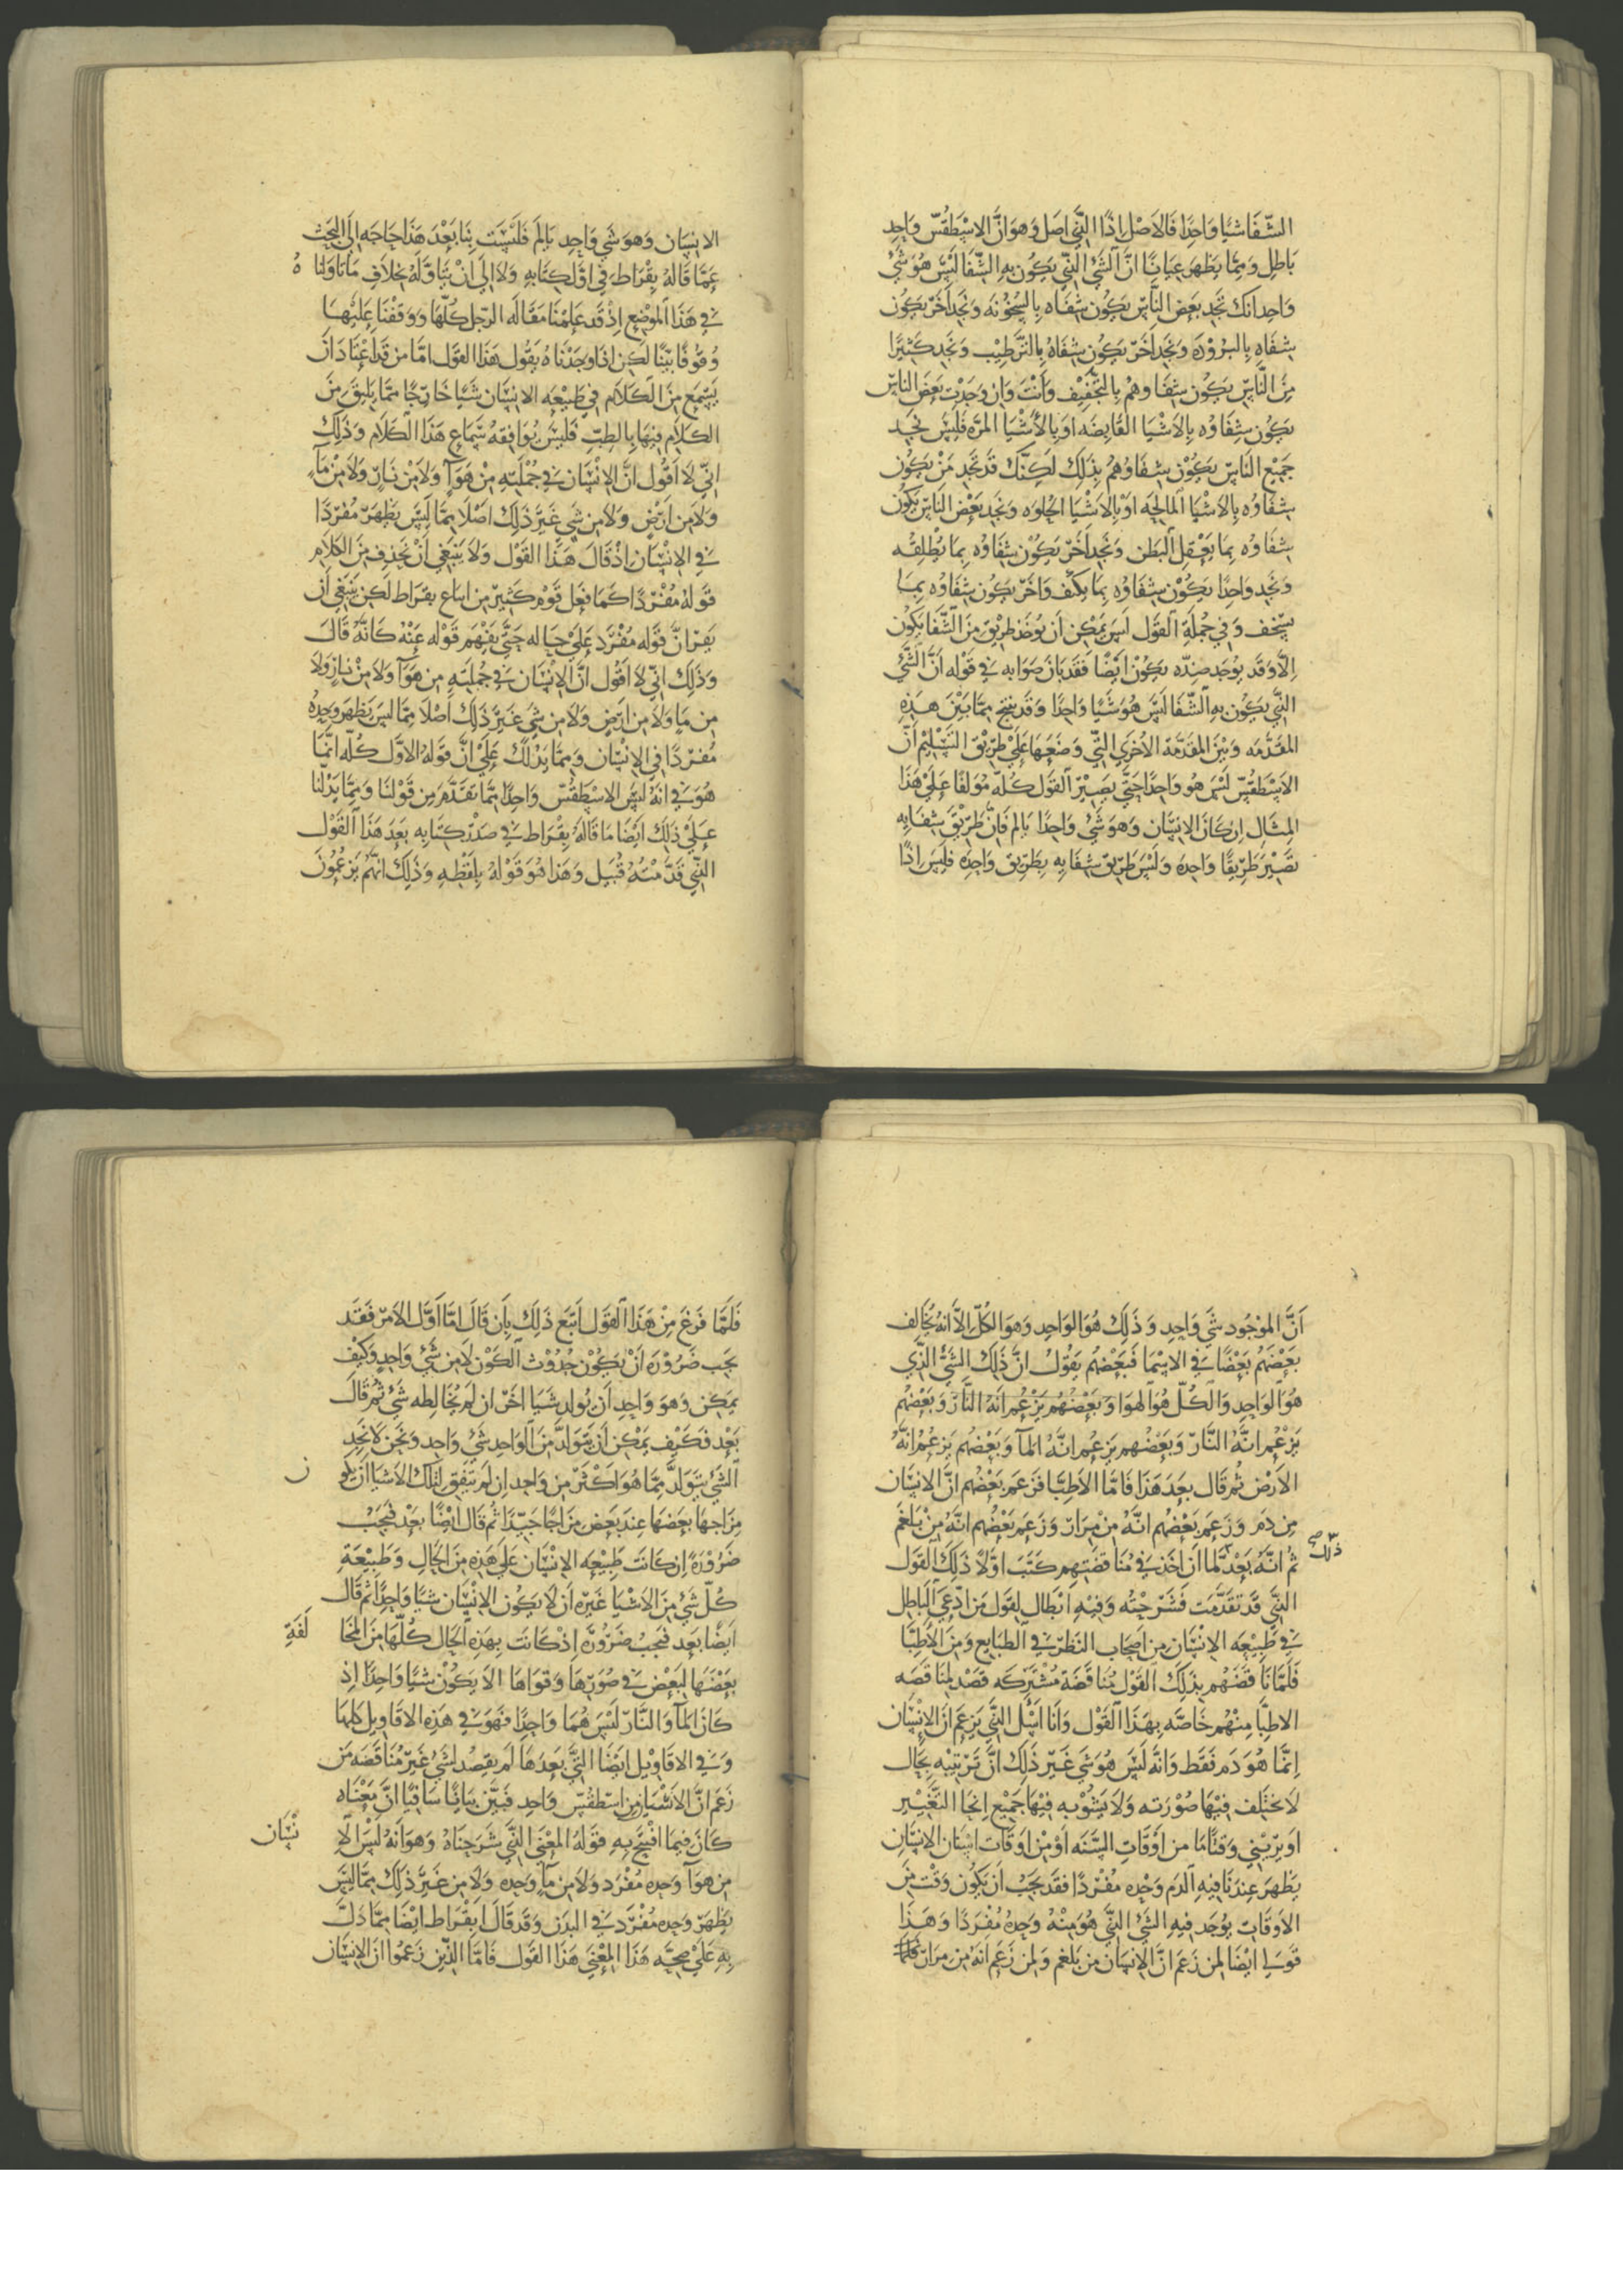 الشفا شيا واحدا فالاصل اذا الذي اصل وهو ان الاسطقس واحد
باطل ومما يظهر عيانا ان الشي الذي يكون به الشفا ليس هو شي
واحد انك تجد بعض الناس يكون شفاه بالسخونه وتجد اخر يكون
شفاه بالبروده وتجد اخر يكون شفاه بالترطيب وتجد كثيرا
من الناس يكون شفاوهم بالتجفيف وانت وان وجدت بعض الناس
يكون شفاوه بالاشيا القابضه او بالاشيا المره فليس تجد
جميع الناس يكون شفاوهم بذلك لكنك قد تجد من يكون
شفاوه بالاشيا المالحه او بالاشيا الحلوه وتجد بعض الناس يكون
شفاوه بما يعقل البطن وتجد اخر يكون شفاوه بما يطلقه
وتجد واحدا يكون شفاوه بما يكثف واخر يكون شفاوه بما
يسخف وفي جملة القول ليس يمكن ان يوخذ طريق من الشفا يكون
الا وقد يوجد ضده يكون ايضا فقد بان صوابه في قوله ان الشي
الذي يكون به الشفا ليس هو شيا واحدا وقد ينتج مما بين هذه
المقدمه وبين المقدمة الاخرى التي وضعها على طريق التسليم ان
الاسطقس ليس هو واحدا حتى يصير القول كله مولفا على هذا
المثال ان كان الانسان وهو شي واحدا يالم فان طريق شفايه
تصير طريقا واحده وليس طريق شفايه بطريق واحده فليس اذا
الانسان وهو شي واحد يالم فليست بنا بعد هذا حاجه الى البحث
عما قاله بقراط في اول كتابه ولا الى ان نتاوله بخلاف ما تاولناه
في هذا الموضع اذ قد علمنا مقالة الرجل كلها ووقفنا عليها
وقوفا بينا لكن اذا وجدناه يقول هذا القول اما من قد اعتاد ان
يسمع من الكلام في طبيعه الانسان شيا خارجا مما يليق من
الكلام فيها بالطب فليس يوافقه سماع هذا الكلام وذلك
اني لا اقول ان الانسان في جملته من هوا ولا من نار ولا من ما
ولا من ارض ولا من شي غير ذلك اصلا مما ليس يظهر مفردا
في الانسان اذ قال هذا القول ولا ينبغي ان نحذف من الكلام
قوله مفردا كما فعل قوم كثير من اتباع بقراط لكن ينبغي ان
يقر ان قوله مفرد على حياله حتى يفهم قوله عنه كانه قال
وذلك اني لا اقول ان الانسان في جملته من هوا ولا من نار ولا
من ما ولا من ارض ولا من شي غير ذلك اصلا مما ليس يظهر وحده
مفردا في الانسان ومما يدلك على ان قوله الاول كله انما
هو في انه ليس الاسطقس واحدا مما تقدم من قولنا ومما يدلنا
على ذلك ايضا ما قاله بقراط في صدر كتابه بعد هذا القول
الذي قدمته قبيل وهذا هو قوله بلفظه وذلك انهم يزعمون
ان الموجود شي واحد وذلك هو الواحد وهو الكل الا انه يخالف
بعضهم بعضا في الاسما فبعضهم يقول ان ذلك الشي الذي
هو الواحد والكل هو الهوا وبعضهم يزعم انه النار وبعضهم
يزعم انه النار وبعضهم يزعم انه الما وبعضهم يزعم انه
الارض ثم قال بعد هذا فاما الاطبا فزعم بعضهم ان الانسان
من دم وزعم بعضهم انه من مرار وزعم بعضهم انه من بلغم
ثم انه بعد لما ان اخذ في مناقضتهم كتب اولا ذلك القول
ذلك صح
الذي قد تقدمت فشرحته وفيه ابطال لقول من ادعى الباطل
في طبيعه الانسان من اصحاب النظر في الطبايع ومن الاطبا
فلما ناقضهم بذلك القول مناقضة مشتركه قصد لمناقضه
الاطبا منهم خاصه بهذا القول وانا اسل الذي يزعم ان الانسان
انما هو دم فقط وانه ليس هو شي غير ذلك ان يرينيه بحال
لا تختلف فيها صورته ولا يشوبه فيها جميع انحا التغيير
او يريني وقتا ما من اوقات السنه او من اوقات اسنان الانسان
يظهر عندنا فيه الدم وحده مفردا فقد يجب ان يكون وقت من
الاوقات يوجد فيه الشي الذي هو منه وحده مفردا وهذا
قولي ايضا لمن زعم ان الانسان من بلغم ولمن زعم انه من مرار فلما
فلما فرغ من هذا القول اتبع ذلك بان قال اما اول الامر فقد
يجب ضروره ان يكون حدوث الكون لا من شي واحد وكيف
يمكن وهو واحد ان يولد شيا اخر ان لم يخالطه شي ثم قال
بعد فكيف يمكن ان يتولد من الواحد شي واحد ونحن لا نجد
الشي يتولد مما هو اكثر من واحد ان لم يتفق لتلك الاشيا ان يكون
مزاجها بعضها عند بعض مزاجا جيدا ثم قال ايضا بعد فيجب
ضرورة ان كانت طبيعه الانسان على هذه من الحال وطبيعة
كل شي من الاشيا غيره ان لا يكون الانسان شيا واحدا ثم قال
ايضا بعد فيجب ضرورة اذ كانت بهذه الحال كلها من المخالفة
بعضها لبعض في صورها وقواها الا يكون شيا واحدا اذ
كان الما والنار ليس هما واحدا فهو في هذه الاقاويل كلها
وفي الاقاويل ايضا التي بعدها لم يقصد لشي غير مناقضه من
زعم ان الاشيا من اسطقس واحد فبين بيانا شافيا ان معناه
كان فيما افتتح به قوله المعنى الذي شرحناه وهو انه ليس الانسان
من هوا وحده مفرد ولا من ما وحده ولا من غير ذلك مما ليس
يظهر وحده مفرد في البدن وقد قال ابقراط ايضا مما دل
به على صحة هذا المعنى هذا القول فاما الذين زعموا ان الانسان